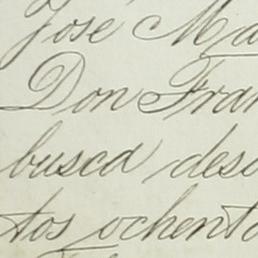 José Ma
Don Fran
busca des
tos ochenta